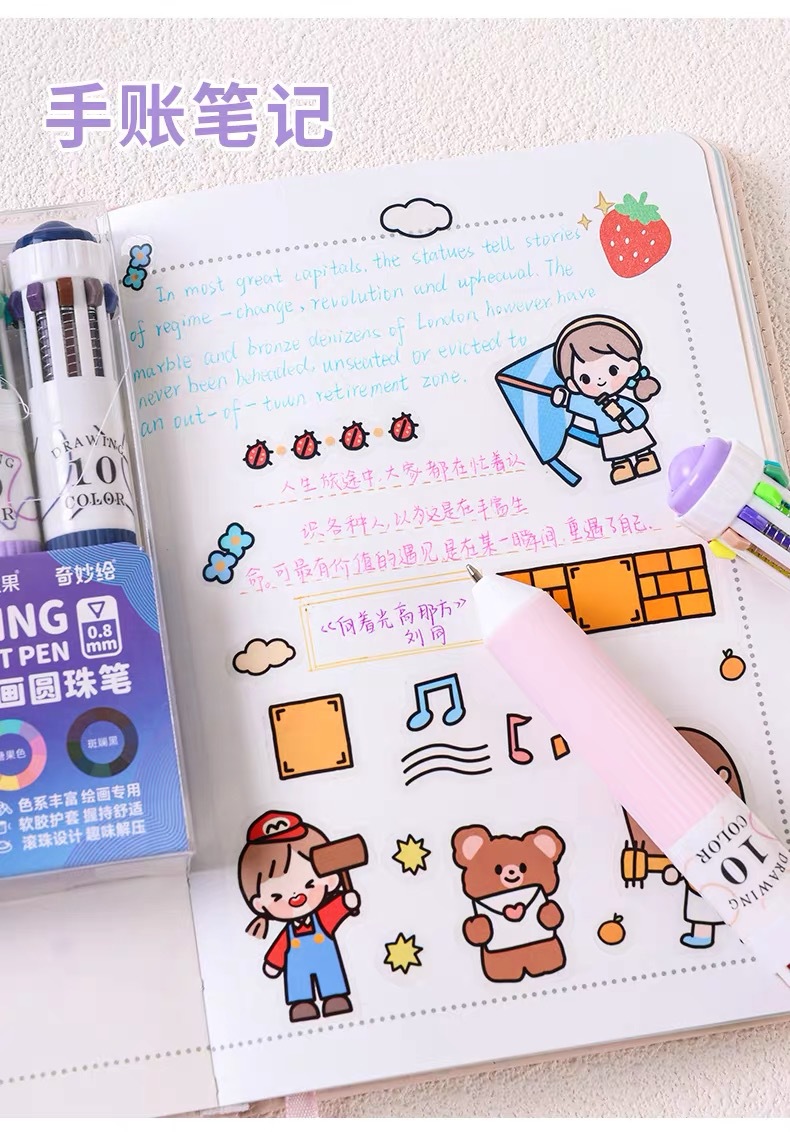 手账笔记
In most great capitals, the statues tell stories
of regime-change, revolution and upheaval. The
marble and bronze denizens of London however have
never been beheaded, unseated or evicted to
an out-of-town retirement zone.
人生旅途中,大家都在忙着认
识各种人,以为这是在丰富生
命。可最有价值的遇见,是在某一瞬间,重遇了自己.
《向着光亮那方》
刘同
DRAWING
10
COLOR
果® 奇妙绘
ING
T PEN
0.8
mm
画圆珠笔
糖果色
斑斓黑
色系丰富 绘画专用
软胶护套 握持舒适
滚珠设计 趣味解压
M
DRAWING
10
COLOR